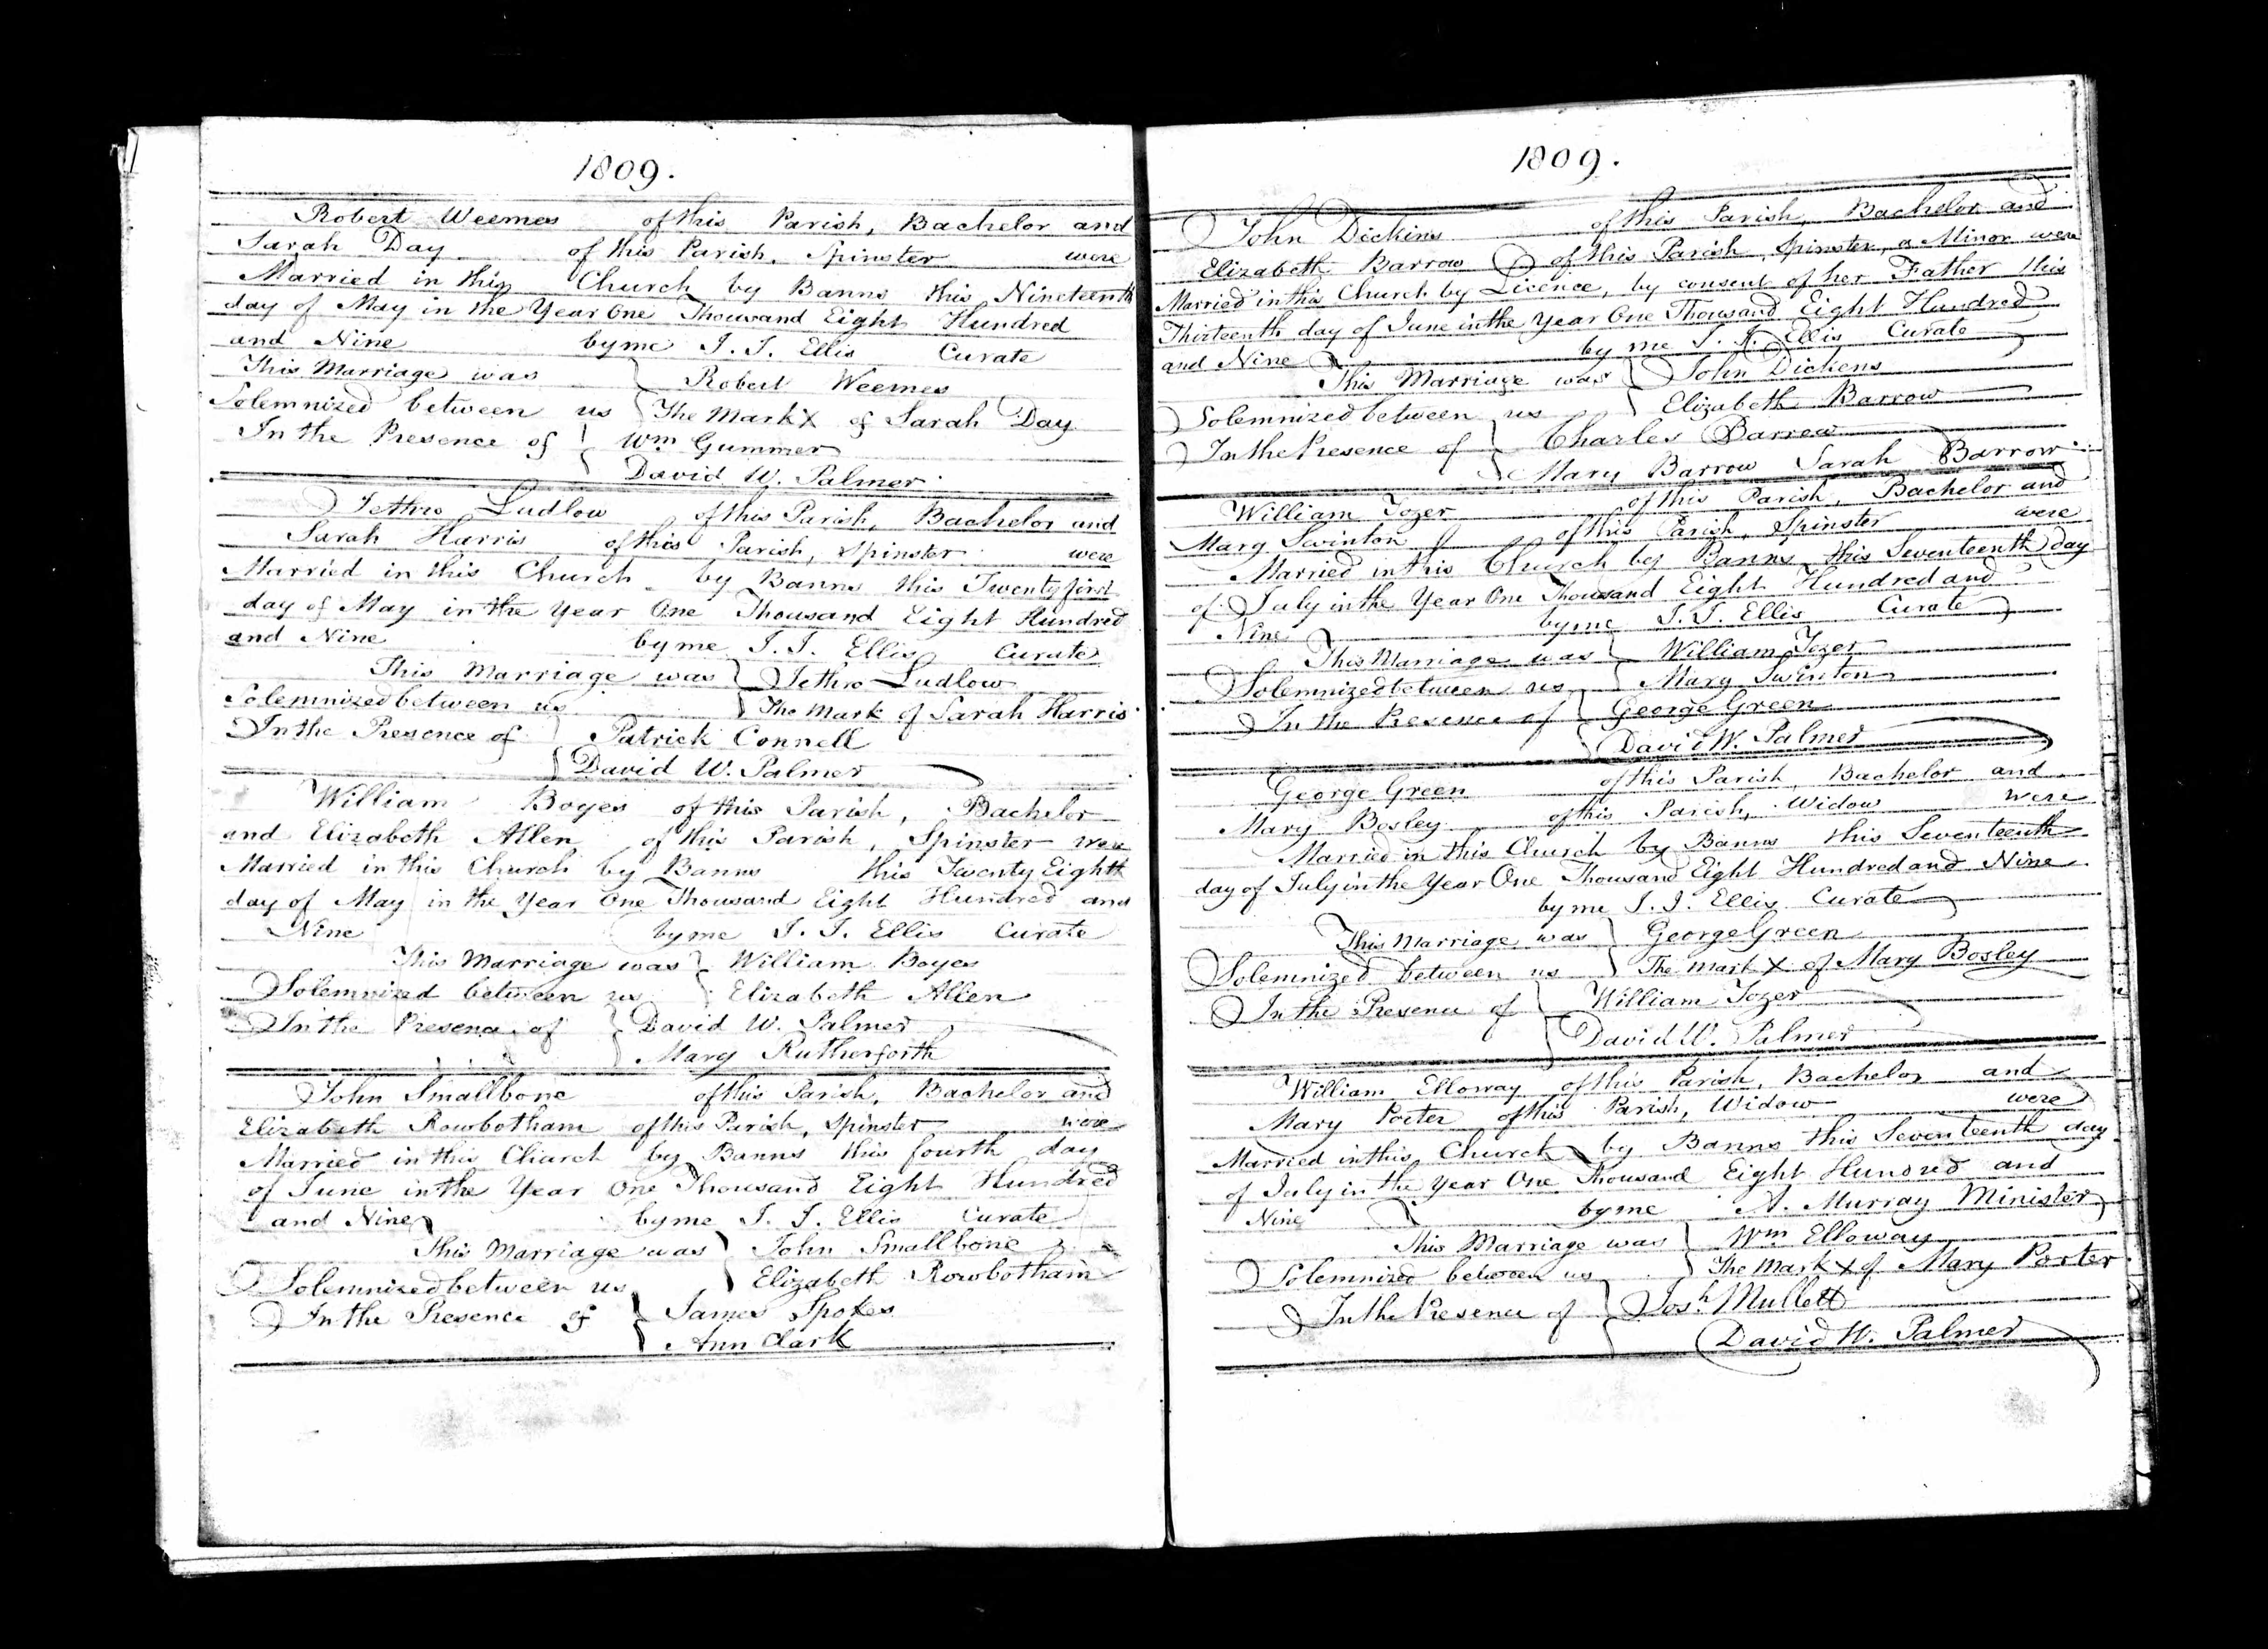 1809.
Robert Weemes of this Parish, Bachelor and
Sarah Day of this Parish, Spinster were
Married in this Church by Banns this Nineteenth
day of May in the Year One Thousand Eight Hundred
and Nine by me J. J. Ellis Curate
This Marriage was } Robert Weemes
Solemnized between us { The Mark X of Sarah Day
In the Presence of } Wm Gummer
{ David W. Palmer
Jethro Ludlow of this Parish, Bachelor and
Sarah Harris of this Parish, Spinster were
Married in this Church by Banns this Twenty first
day of May in the Year One Thousand Eight Hundred
and Nine by me J. J. Ellis Curate
This Marriage was } Jethro Ludlow
Solemnized between us } The Mark of Sarah Harris
In the Presence of } Patrick Connell
{ David W. Palmer
William Boyes of this Parish, Bachelor
and Elizabeth Allen of this Parish, Spinster were
Married in this Church by Banns this Twenty Eighth
day of May in the Year One Thousand Eight Hundred and
Nine by me J. J. Ellis Curate
This Marriage was } William Boyes
Solemnized between us } Elizabeth Allen
In the Presence of } David W. Palmer
} Mary Rutherforth
John Smallbone of this Parish, Bachelor and
Elizabeth Rowbotham of this Parish, Spinster were
Married in this Church by Banns this fourth day
of June in the Year One Thousand Eight Hundred
and Nine by me J. J. Ellis Curate
This Marriage was } John Smallbone
Solemnized between us } Elizabeth Rowbotham
In the Presence of } James Spokes
} Ann Clark
1809.
John Dickins of this Parish, Bachelor and
Elizabeth Barrow of this Parish, Spinster, a Minor were
Married in this Church by Licence, by consent of her Father this
Thirteenth day of June in the Year One Thousand Eight Hundred
and Nine by me J. J. Ellis Curate
This Marriage was { John Dickens
Solemnized between us { Elizabeth Barrow
In the Presence of } Charles Barrow
} Mary Barrow Sarah Barrow
William Tozer of this Parish, Bachelor and
Mary Swinton of this Parish, Spinster were
Married in this Church by Banns this Seventeenth day
of July in the Year One Thousand Eight Hundred and
Nine by me J. J. Ellis Curate
This Marriage was { William Tozer
Solemnized between us { Mary Swinton
In the Presence of { George Green
{ David W. Palmer
George Green of this Parish, Bachelor and
Mary Bosley of this Parish, Widow were
Married in this Church by Banns this Seventeenth
day of July in the Year One Thousand Eight Hundred and Nine
by me J. J. Ellis Curate
This Marriage was } George Green
Solemnized between us } The Mark X of Mary Bosley
In the Presence of { William Tozer
{ David W. Palmer
William Elloway of this Parish, Bachelor and
Mary Porter of this Parish, Widow were
Married in this Church by Banns this Seventeenth day
of July in the Year One Thousand Eight Hundred and
Nine by me A. Murray Minister
This Marriage was } Wm Elloway
Solemnized between us } The Mark X of Mary Porter
In the Presence of } Josh Mullett
{ David W. Palmer